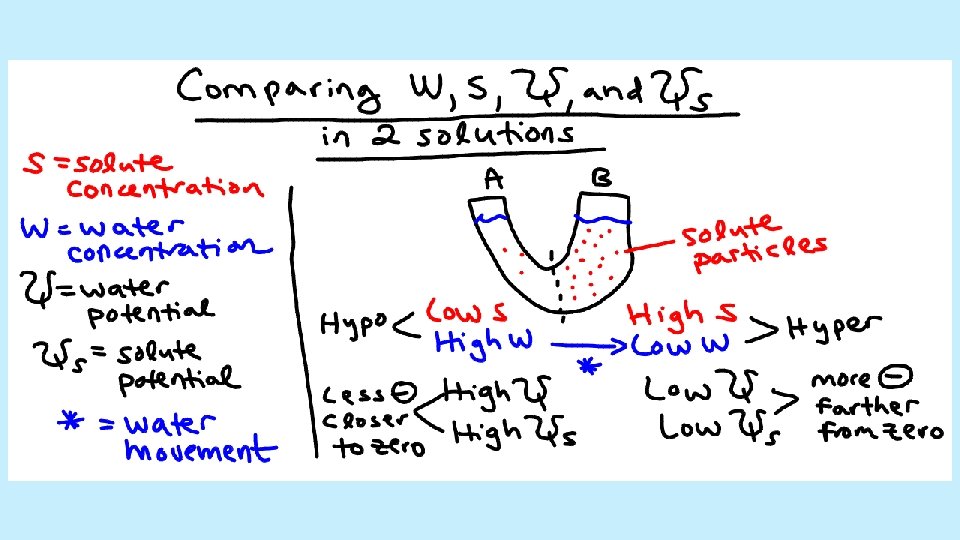 Comparing W, S, Ψ, and Ψs
in 2 solutions
S = solute
concentration
W = water
concentration
Ψ = water
potential
Ψs = solute
potential
* = water
movement
A B
solute
particles
Hypo < Low S
High W
→
*
High S
Low W > Hyper
Less ⊖
closer
to zero
< High Ψ
High Ψs
Low Ψ
Low Ψs >
more ⊖
farther
from zero